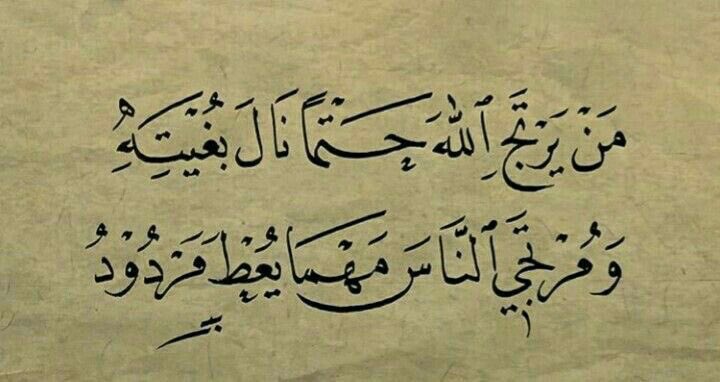 مَنْ يَرْتَجِ ٱللّٰهَ حَتْمًا نَالَ بُغْيَتِهُ
وَمُرْتَجِي ٱلنَّاسَ مَهْمَا يُعْطَ مَرْدُوْدُ